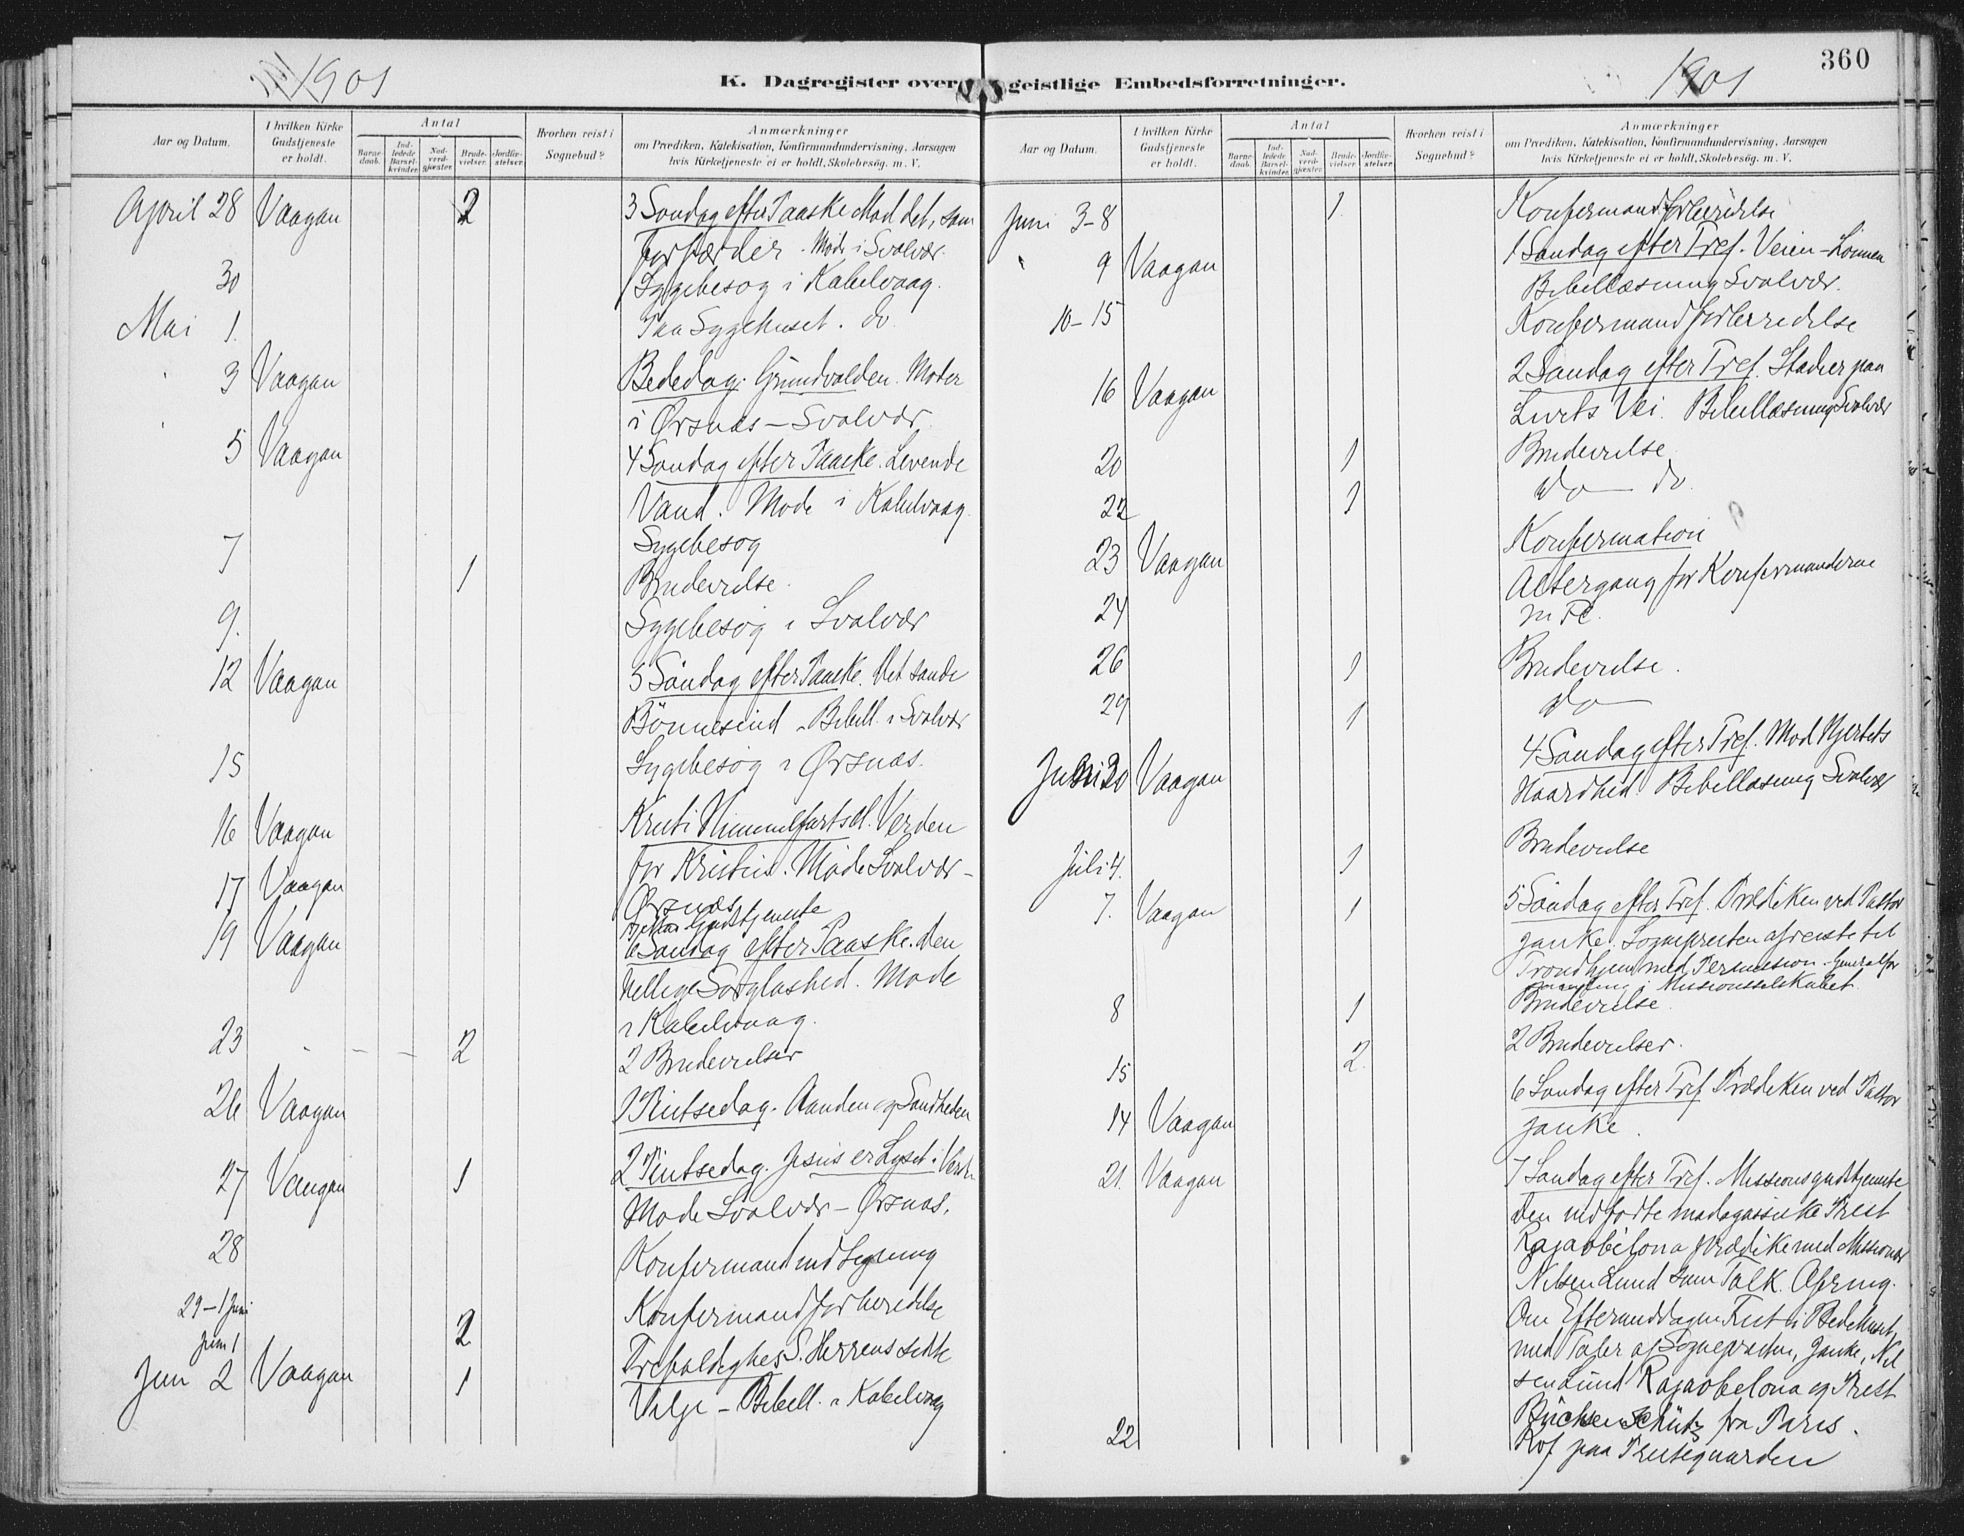 1901
K. Dagregister over
Aar og Datum.
I hvilken Kirke Gudstjeneste er holdt.
Antal
Barnedaab.
Indledede Barselkvinder.
Nadverdgjæster.
Brudevielser.
Jordfæstelser.
Hvorhen reist i Sognebud?
Anmærkninger
om Prædiken, Katekisation, Konfirmandundervisning, Aarsagen
hvis Kirketjeneste ei er holdt, Skolebesøg. m. V.
April 28 Vaagan 2 3 Søndag efter Paaske Mod det, som
forfærder. Møde i Svolvær.
30 Sygebesøg i Kabelvaag.
Mai 1. Paa Sygehuset. do
3 Vaagan Bededag. Grundvolden. Møder
i Ørsnæs – Svolvær.
5 Vaagan 4 Søndag efter Paaske. Levende
Vand. Møde i Kabelvaag.
7 Sygebesøg
1 Brudevielse.
9. Sygebesøg i Svolvær
12 Vaagan 5 Søndag efter Paaske. Det sande
Bønnesind – Bibell. i Svolvær
15 Sygebesøg i Ørsnæs.
16 Vaagan Kristi Himmelfartsd. Verden
for Kristus. Møde Svolvær –
17 Vaagan Ørsnæs
Gudstjeneste
19 Vaagan 6 Søndag efter Paaske. Den
hellige Sorgløshed. Møde
i Kabelvaag.
23 – – – 2 2 Brudevielser
26 Vaagan 1 Pintsedag. Aanden og Sandheden
27 Vaagan 1 2 Pintsedag. Jesus er Lyset i Verdn
Møde Svolvær – Ørsnæs.
28 Konfirmandindtegning
29 – 1 Juni Konfirmandforberedelse
Juni 1 2
Juni 2 Vaagan 1 Trefoldighes S. Herrens sidste
Vilje – Bibell. i Kabelvaag
1901
360
geistlige Embedsforretninger.
Aar og Datum.
I hvilken Kirke Gudstjeneste er holdt.
Antal
Barnedaab.
Indledede Barselkvinder.
Nadverdgjæster.
Brudevielser.
Jordfæstelser.
Hvorhen reist i Sognebud?
Anmærkninger
om Prædiken, Katekisation, Konfirmandundervisning, Aarsagen
hvis Kirketjeneste ei er holdt, Skolebesøg. m. V.
Juni 3–8 1 Konfirmandforberedelse
" 9 Vaagan 1 Søndag efter Tref. Veien – Lønnen
Bibellæsning Svolvær.
10–15 Konfirmandforberedelse
16 Vaagan 2 Søndag efter Tref. Stadier paa
Livets Vei. Bibellæsning Svolvær
20 1 Brudevielse
22 1 do – do.
23 Vaagan Konfirmation
24 Altergang for Konfirmanderne
m. Fl.
26 1 Brudevielse.
29 1 do –
Juni 30 Vaagan 4 Søndag efter Tref. Mod Hjertets
Haardhed. Bibellæsning Svolvær
Juli 4. 1 Brudevielse
7. Vaagan 1 5 Søndag efter Tref. Prædiken ved Pastor
Janke. Sognepresten afreiste til
Trondhjem med Permission – Generalfor
samling i Missionsselskabet.
8 1 Brudevielse.
15 2. 2 Brudevielser.
14 Vaagan 6 Søndag efter Tref Prædiken ved Pastor
Janke.
21. Vaagan 7 Søndag efter Tref. Missionsgudstjeneste
Den indfødte madagassiske Prest
Rajaobelona prædike med Missionær
Nilsen Lund som Tolk. Ofring.
Om Eftermiddagen Fest i Bedehuset
med Taler af Sognepresten, Janke, Nil
sen Lund Rajaobelona og Prest
Büchsenschütz fra Paris.
22 paa Prestegaarden